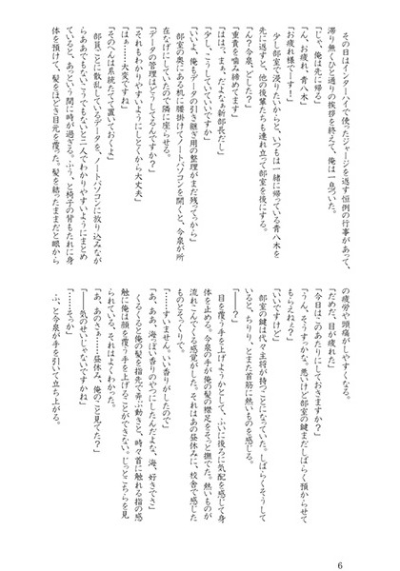 その日はインターハイで使ったジャージを返す恒例の行事があって、
滞り無くひと通りの挨拶を終えて、俺は一息ついた。
「じゃ、俺は先に帰る」
「ん、お疲れ、青八木」
「お疲れ様でーす！」
少し部室で浸りたいからと、いつもは一緒に帰っている青八木を
先に返すと、他の後輩たちも連れ立って部室を後にする。
「ん？今泉、どした？」
「重責を噛み締めてます」
「はは、まぁ、だよなぁ新部長だし」
「少し、こうしていていいですか」
「いいよ、俺もデータの引き継ぎ用の整理がまだ残ってっから」
部室の奥にある机に腰掛けてノートパソコンを開くと、今泉が所
在なげにしていたので隣に座らせる。
「データの管理はどうしてるんですか？」
「それもわかりやすいようにしとくから大丈夫」
「は……大変ですね」
「そのへんは系統たてて置いておくよ」
部員ごとに散乱しているデータを、ノートパソコンに放り込みなが
らああでもないこうでもないと二人でわかりやすいようにまとめ
ていると、あっという間に時が過ぎる。ふぅ、と椅子の背もたれに身
体を預けて、髪をほどき目元を覆った。髪を結ったままだと眼から
の疲労や頭痛がしやすくなる。
「だめだ、目が疲れた」
「今日は、このあたりにしておきますか？」
「うん、そうすっかな。悪いけど部室の鍵まだしばらく預からせて
もらえねぇ？」
「いいですけど」
部室の鍵は代々主将が持つことになっていた。しばらくそうして
いると、ちりり、とまた首筋に熱いものを感じる。
「――？」
目を覆う手を上げようかとして、ふいに後ろに気配を感じて身
体を止める。今泉の手が俺の髪の襟足をそっと撫でた。熱いものが
流れこんでくる感覚がした。それはあの昼休みに、校舎で感じた
ものとそっくりで。
「――すいません、いい香りがしたので」
「あ、ああ、海っぽい香りのやつにしたんだよな、海、好きでさ」
くるくると俺の髪を指先で弄ぶ動きと、時々首に触れる指の感
触に俺は顔を覆う手を上げることができない。じっとこちらを見
られている、それはよくわかった。
「あ、あのさぁ……昼休み、俺のこと見てた？」
「――気のせいじゃないですかね」
「……そっか」
ふ、と今泉が手を引いて立ち上がる。
6